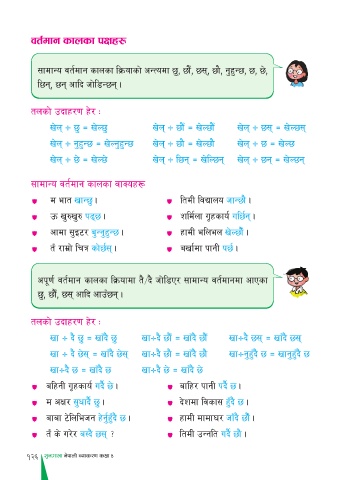 वर्तमान कालका पक्षहरू
सामान्य वर्तमान कालका क्रियाको अन्त्यमा छु, छौँ, छस्, छौ, नुहुन्छ, छ, छे,
छिन्, छन् आदि जोडिन्छन् ।
तलको उदाहरण हेर :
खेल् + छु = खेल्छु खेल् + छौँ = खेल्छौँ खेल् + छस् = खेल्छस्
खेल् + नुहुन्छ = खेल्नुहुन्छ खेल् + छौ = खेल्छौ खेल् + छ = खेल्छ
खेल् + छे = खेल्छे खेल् + छिन् = खेल्छिन् खेल् + छन् = खेल्छन्
सामान्य वर्तमान कालका वाक्यहरू
म भात खान्छु । तिमी विद्यालय जान्छौ ।
ऊ खुरुखुरु पढ्छ । शर्मिला गृहकार्य गर्छिन् ।
आमा सुइटर बुन्नुहुन्छ । हामी भलिभल खेल्छौँ ।
तँ राम्रो चित्र कोर्छस् । वर्खामा पानी पर्छ ।
अपूर्ण वर्तमान कालका क्रियामा तै/दै जोडिएर सामान्य वर्तमानमा आएका
छु, छौँ, छस् आदि आउँछन् ।
तलको उदाहरण हेर :
खा + दै छु = खाँदै छु खा+दै छौँ = खाँदै छौँ खा+दै छस् = खाँदै छस्
खा + दै छेस् = खाँदै छेस् खा+दै छौ = खाँदै छौ खा+नुहुँदै छ = खानुहुँदै छ
खा+दै छ = खाँदै छ खा+दै छे = खाँदै छे
बहिनी गृहकार्य गर्दै छे । बाहिर पानी पर्दै छ ।
म अक्षर सुधार्दै छु । देशमा विकास हुँदै छ ।
बाबा टेलिभिजन हेर्नुहुँदै छ । हामी मामाघर जाँदै छौँ ।
तँ के गरेर बस्दै छस् ? तिमी उन्नति गर्दै छौ ।
१२६ नेपाली व्याकरण कक्षा ३